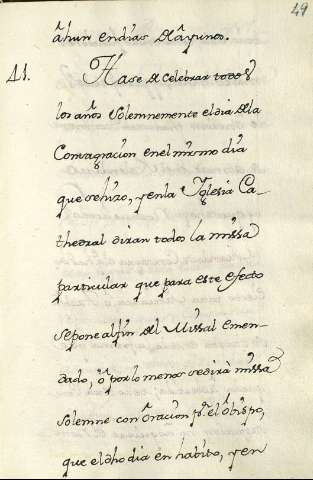 49
àhun en dias de àyunos.
41. Hase de celebrar todos
los años solemnemente el dia de la
Consagracion en el mismo dia
que se hizo, y en la Iglesia Ca-
thedral diran todos la missa
particular que para este efecto
se pone al fin del Missal emen-
dado, ò por lo menos se dirà missa
solemne con òracion pr. el òbispo,
que el dho dia èn habito, y en